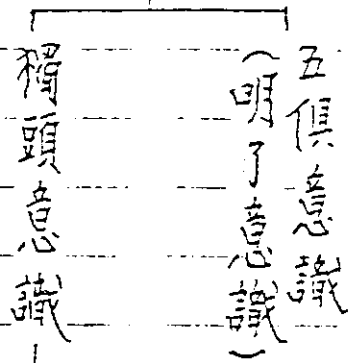 五俱意識
(明了意識)
獨頭意識